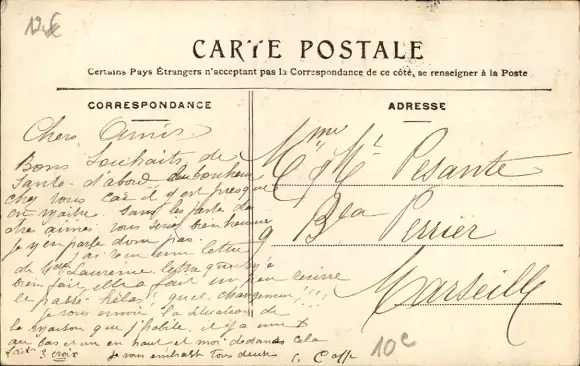 12 €
CARTE POSTALE
Certains Pays Étrangers n'acceptant pas la Correspondance de ce côté, se renseigner à la Poste
CORRESPONDANCE
Chers Amis
Bons Souhaits de
Santé d'abord du bonheur
chez vous car il y est presque
en maître. Sans les perte de
être aimés vous seriez bienheureux
je n'y en parle donc pas.
j'ai reçu une lettre
de Laurence lettre qui m'a
bien fait, elle a fait un peu revivre
le passé hélas! quel changement!!!
je vous envoie la situation de
la maison que j'habite, il y a une X
au bas et un en haut et moi dedans cela
fait 3 croix Je vous embrasse tous deux
ADRESSE
Mme & Mr Pesante
9 Bd Perrier
Marseille
10€